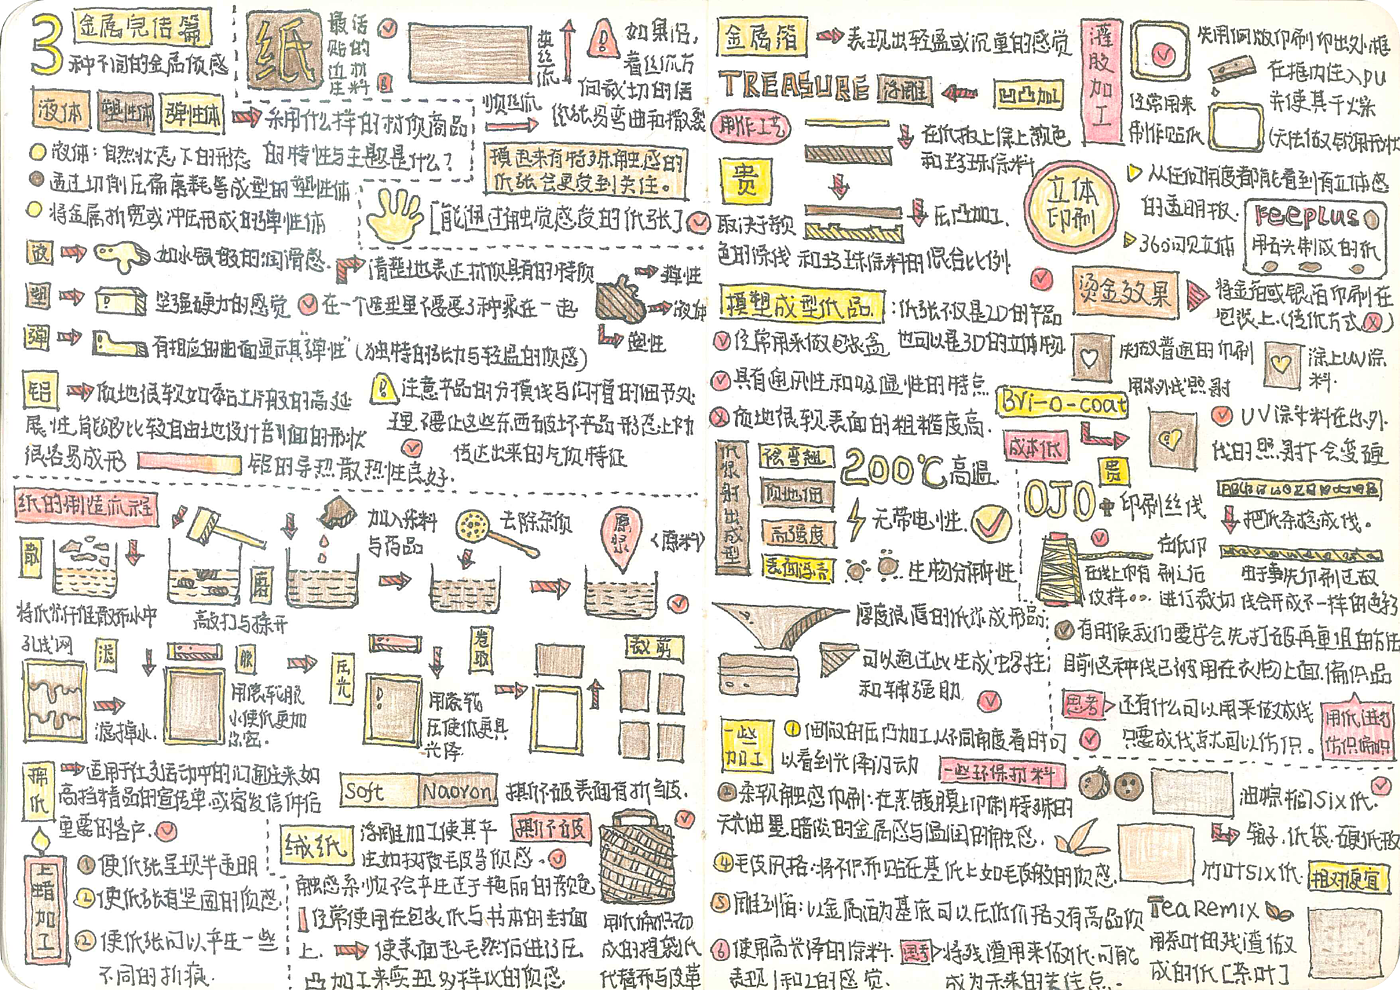 3 金属完结篇
种不同的金属质感
液体 塑性体 弹性体
采用什么样的材质商品
的特性与主题是什么?
液体:自然状态下的形态
透过切削压痛磨耗等成型的塑性体
将金属折弯或冲压形成的弹性体
液 如水银般的润滑感.
塑 坚强硬力的感觉
弹 有相应的曲面显示其弹性
(独特的张力与轻盈的质感)
清楚地表达材质具有的特质
在一个造型里不要要3种柔在一起
弹性
液体
塑性
铝 质地很软如黏土片般的高延
展性,能够比较自由地设计剖面的形状
很容易成形 铝的导热散热性良好.
注意产品的分模线与闪背的细节处
理,不要让这些东西破坏产品形态上材
传达出来的气质特征
纸
最活
贴的
近材
生料
丝流
顺丝流
如果沿
着丝流方
向裁切的话
纸张易弯曲和撕裂
摸起来有特殊触感的
纸张会更受到关注。
[能通过触觉感受的纸张]
纸的制造流程
散
加入染料
与药品
去除杂质
原浆
(原料)
磨
高敲打与梳开
滤
滤掉水.
服
用滚轮服
水使纸更加
压光
卷取
用滚轮
压使纸更具
光泽
裁剪
棉纸
适用于社交活动中的沟通往来如
高档精品的宣传单,或寄发信件给
重要的客户.
Soft Naoron 撕不破表面有折皱.
上蜡加工
①使纸张呈现半透明
②使纸张有坚固的质感
使纸张可以产生一些
不同的折痕.
绒纸
浮雕加工使其产
生如树皮毛皮等质感.
撕不破
触感柔顺不会产生过于艳丽的颜色
经常使用在包装纸与书本的封面
上. 使表面起毛然后进行压
凸加工来实现多样化的质感.
用纸编织切
成的提袋纸
代替布与皮革
金属箔 表现出轻盈或沉重的感觉
TREASURE 浮雕 凹凸加工
用作工艺
在纸板上涂上颜色
和珍珠涂料
贵
压凸加工.
取决于颜
色的涂线 和珍珠涂料的混合比例
模塑成型纸品.:纸张不仅是2D的产品
也可以是3D的立体物
经常用来做包装盒
具有通风性和吸湿性的特点
质地很软表面的粗糙度高.
纸浆射出成型
很弯翘
质地固
高强度
表面浮亮
200℃高温.
无带电性.
生物分解性
厚度很薄的纸张成形品
可以通过此生成出导柱
和铺强肋
一些加工
①细微的压凸加工从不同角度看时可
以看到光泽闪动
一些环保材料
②柔软触感印刷:在蒸镀膜上印刷特殊的
天然油墨.暗质的金属感与温润的触感.
④毛皮风格:将不织布贴在基纸上如毛皮般的质感.
⑤雕刻箔:以金属箔为基底可以压低价格又有高品质
⑥使用高光泽的原料.
表现1和2的感觉.
思考 将残渣用来做纸.可能
成为未来的关注点.
灌胶加工
先用网版印刷印出外框
在框内注入PU
并使其干燥
经常用来
制作贴纸
立体印刷
从任何角度都能看到有立体感
的透明板.
360闪见立体
Feeplus
用石头制成的纸
烫金效果
将金箔或银箔印刷在
包装上.(传统方式)
先做普通的印刷
用紫外线照射
涂上UV涂
料.
Bri-o-coat
成本低
贵
UV涂料在紫外
线的照射下会变硬
OJO
印刷丝线
把纸条捻成线。
在线上印有
仪样..
在纸印
刷之后
进行裁切
由于事先印刷过故
线会形成不一样的色彩
有时候我们要学会先打破再重组的方法
目前这种线已被用在衣物上面,编织品
思考 还有什么可以用来做成线
只要成线就可以仿织.
用纸进行
仿织编织
油棕榈Six纸.
箱子,纸袋,硬纸板
竹叶Six纸. 相对便宜
TeaRemix
用茶叶的残渣做
成的纸[茶叶]